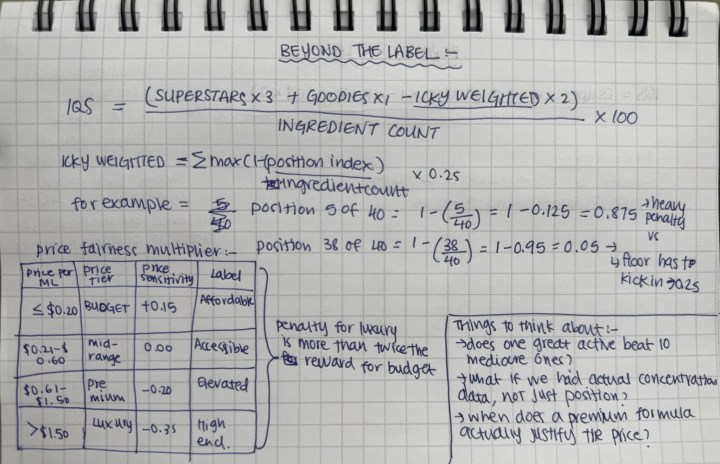 BEYOND THE LABEL :-
IQS = (SUPERSTARS × 3 + GOODIES × 1 - ICKY WEIGHTED × 2) / INGREDIENT COUNT × 100
ICKY WEIGHTED = Σ max(1-(position index) / ingredient count × 0.25
for example = position 5 of 40 = 1-(5/40) = 1-0.125 = 0.875 → heavy penalty
vs
position 38 of 40 = 1-(38/40) = 1-0.95 = 0.05 →
↳ floor has to kick in → 0.25
price fairness multiplier :-
Price per ML | price tier | price sensitivity | Label
≤ $0.20 | BUDGET | +0.15 | Affordable
$0.21-$0.60 | mid-range | 0.00 | Accessible
$0.61-$1.50 | Premium | -0.20 | Elevated
>$1.50 | Luxury | -0.35 | High end.
penalty for luxury
is more than twice the
reward for budget
Things to think about :-
→ does one great active beat 10
mediocre ones?
→ what if we had actual concentration
data, not just position?
→ when does a premium formula
actually justify the price?